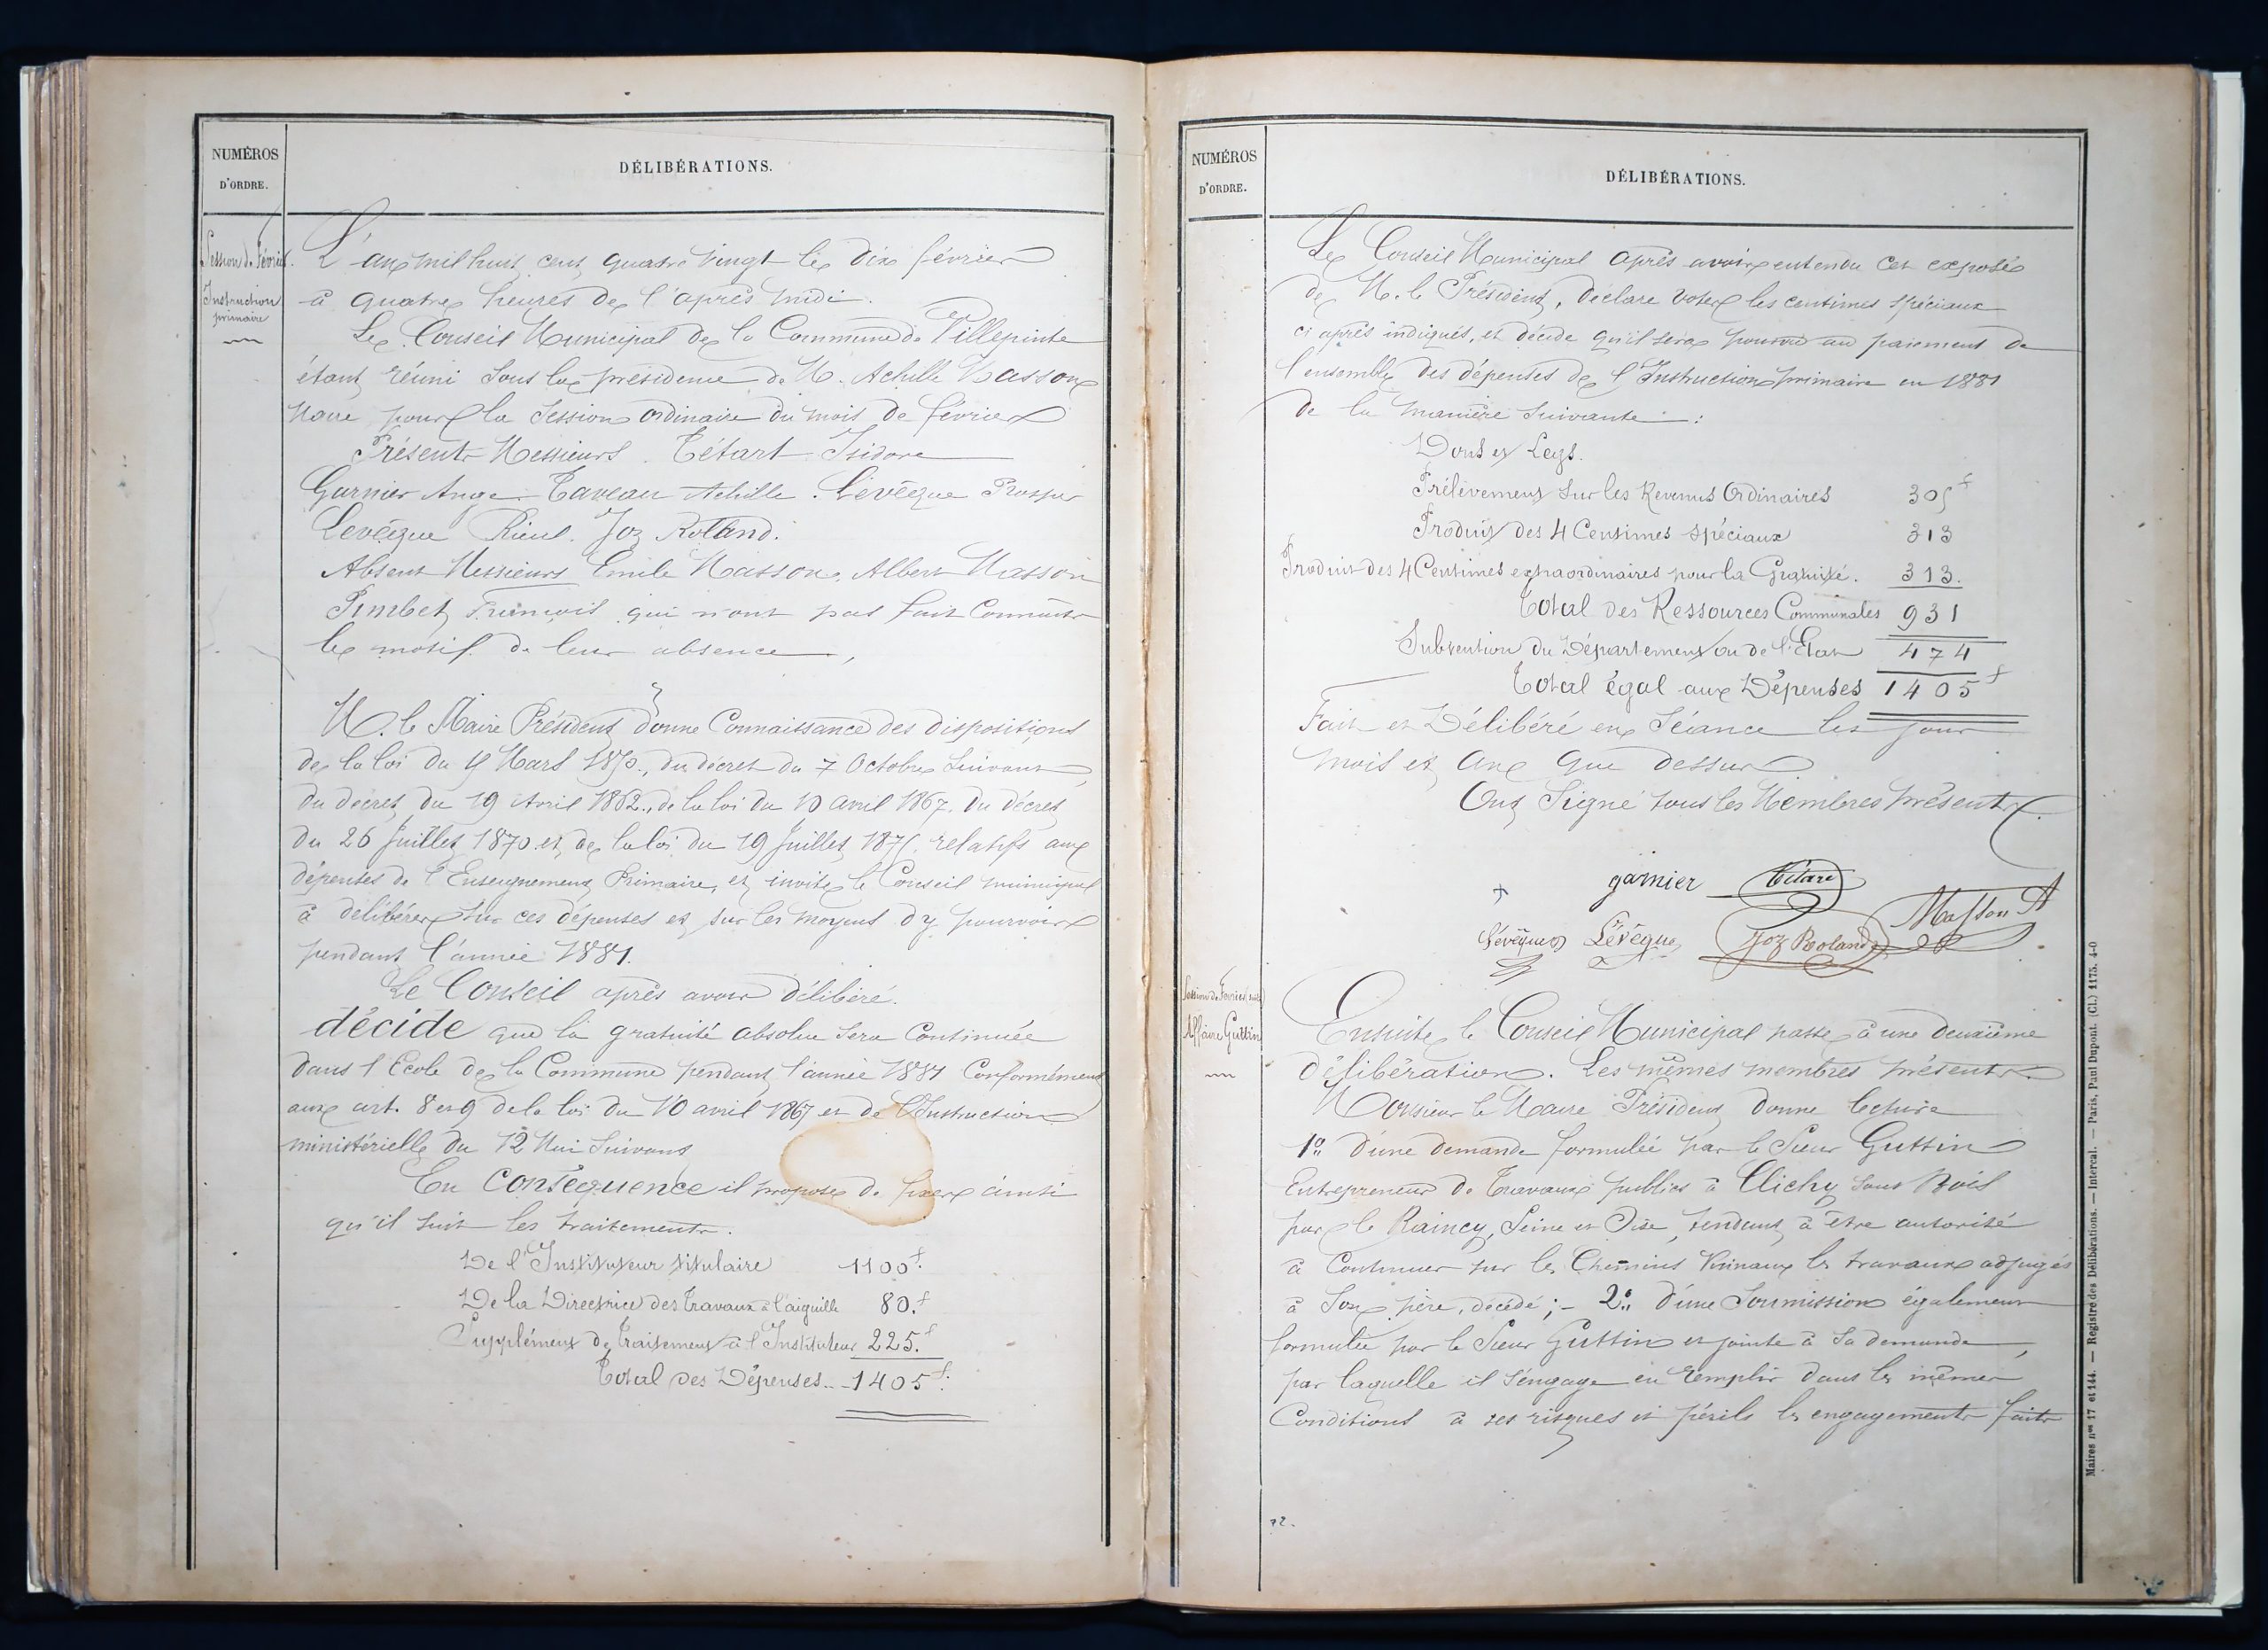 NUMÉROS
D'ORDRE.
DÉLIBÉRATIONS.
Session de Février.
Instruction
primaire
L'an mil huit cent quatre vingt le dix février
à quatre heures de l'après midi.
Le Conseil Municipal de la Commune de Villepinte
étant réuni sous la présidence de M. Achille Masson
Maire pour la Session ordinaire du mois de février
Présents Messieurs. Tétart Isidore
Garnier Ange Taveau Achille. Lévêque Prosper
Levêque Rieul. Joz Roland.
Absent Messieurs Emile Masson, Albert Masson
Pimbet François qui n'ont pas fait Connaitre
le motif de leur absence,
M. le Maire Président donne Connaissance des dispositions
de la loi du 15 Mars 1850, du décret du 7 Octobre suivant,
du décret du 19 Avril 1862, de la loi du 10 avril 1867. du décret
du 26 Juillet 1870 et de la loi du 19 Juillet 1875. relatifs aux
dépenses de l'Enseignement Primaire, et invite le Conseil municipal
à délibérer sur ces dépenses et sur les moyens d'y pourvoir
pendant l'année 1881.
Le Conseil après avoir délibéré.
décide que la gratuité absolue sera Continuée
dans l'Ecole de la Commune pendant l'année 1881 Conformément
aux art. 8 et 9 de la loi du 10 avril 1867 et de l'Instruction
ministérielle du 12 Mai Suivant
En Conséquence il propose de fixer ainsi
qu'il suit les traitements.
De l'Instituteur titulaire 1100 f.
De la Directrice des Travaux à l'aiguille 80. f
Supplément de Traitement à l'Instituteur 225. f
Total des Dépenses... 1405 f.
NUMÉROS
D'ORDRE.
DÉLIBÉRATIONS.
Le Conseil Municipal après avoir entendu cet exposé
de M. le Président, déclare voter les centimes spéciaux
ci après indiqués, et décide qu'il sera pourvu au paiement de
l'ensemble des dépenses de l'Instruction primaire en 1881
de la manière suivante :
Dons et Legs.
Prélèvement sur les Revenus Ordinaires 305 f
Produit des 4 Centimes spéciaux 313
Produit des 4 Centimes extraordinaires pour la Gratuité. 313.
Total des Ressources Communales 931
Subvention du Département ou de l'Etat 474
Total égal aux Dépenses 1405 f
Fait et Délibéré en Séance les jour
mois et an que dessus
Ont Signé tous les Membres présents.
garnier Tétart
Lévêque Lévêque Joz Roland Masson A
Session de Février (suite)
Affaire Guttin
Ensuite le Conseil Municipal passe à une deuxième
délibération. Les mêmes membres présents.
Monsieur le Maire Président donne lecture
1º d'une demande formulée par le Sieur Guttin
Entrepreneur de Travaux publics à Clichy sous Bois
par le Raincy, Seine et Oise, tendant à être autorisé
à Continuer sur les Chemins Vicinaux les travaux adjugés
à Son père, décédé ; - 2º d'une Soumission également
formulée par le Sieur Guttin et jointe à sa demande,
par laquelle il s'engage en remplir dans les mêmes
Conditions à ses risques et périls les engagements faits
72.
Maires nos 17 et 144. — Registre des Délibérations. — Intercal. — Paris, Paul Dupont. (Cl.) 1175. 4-0